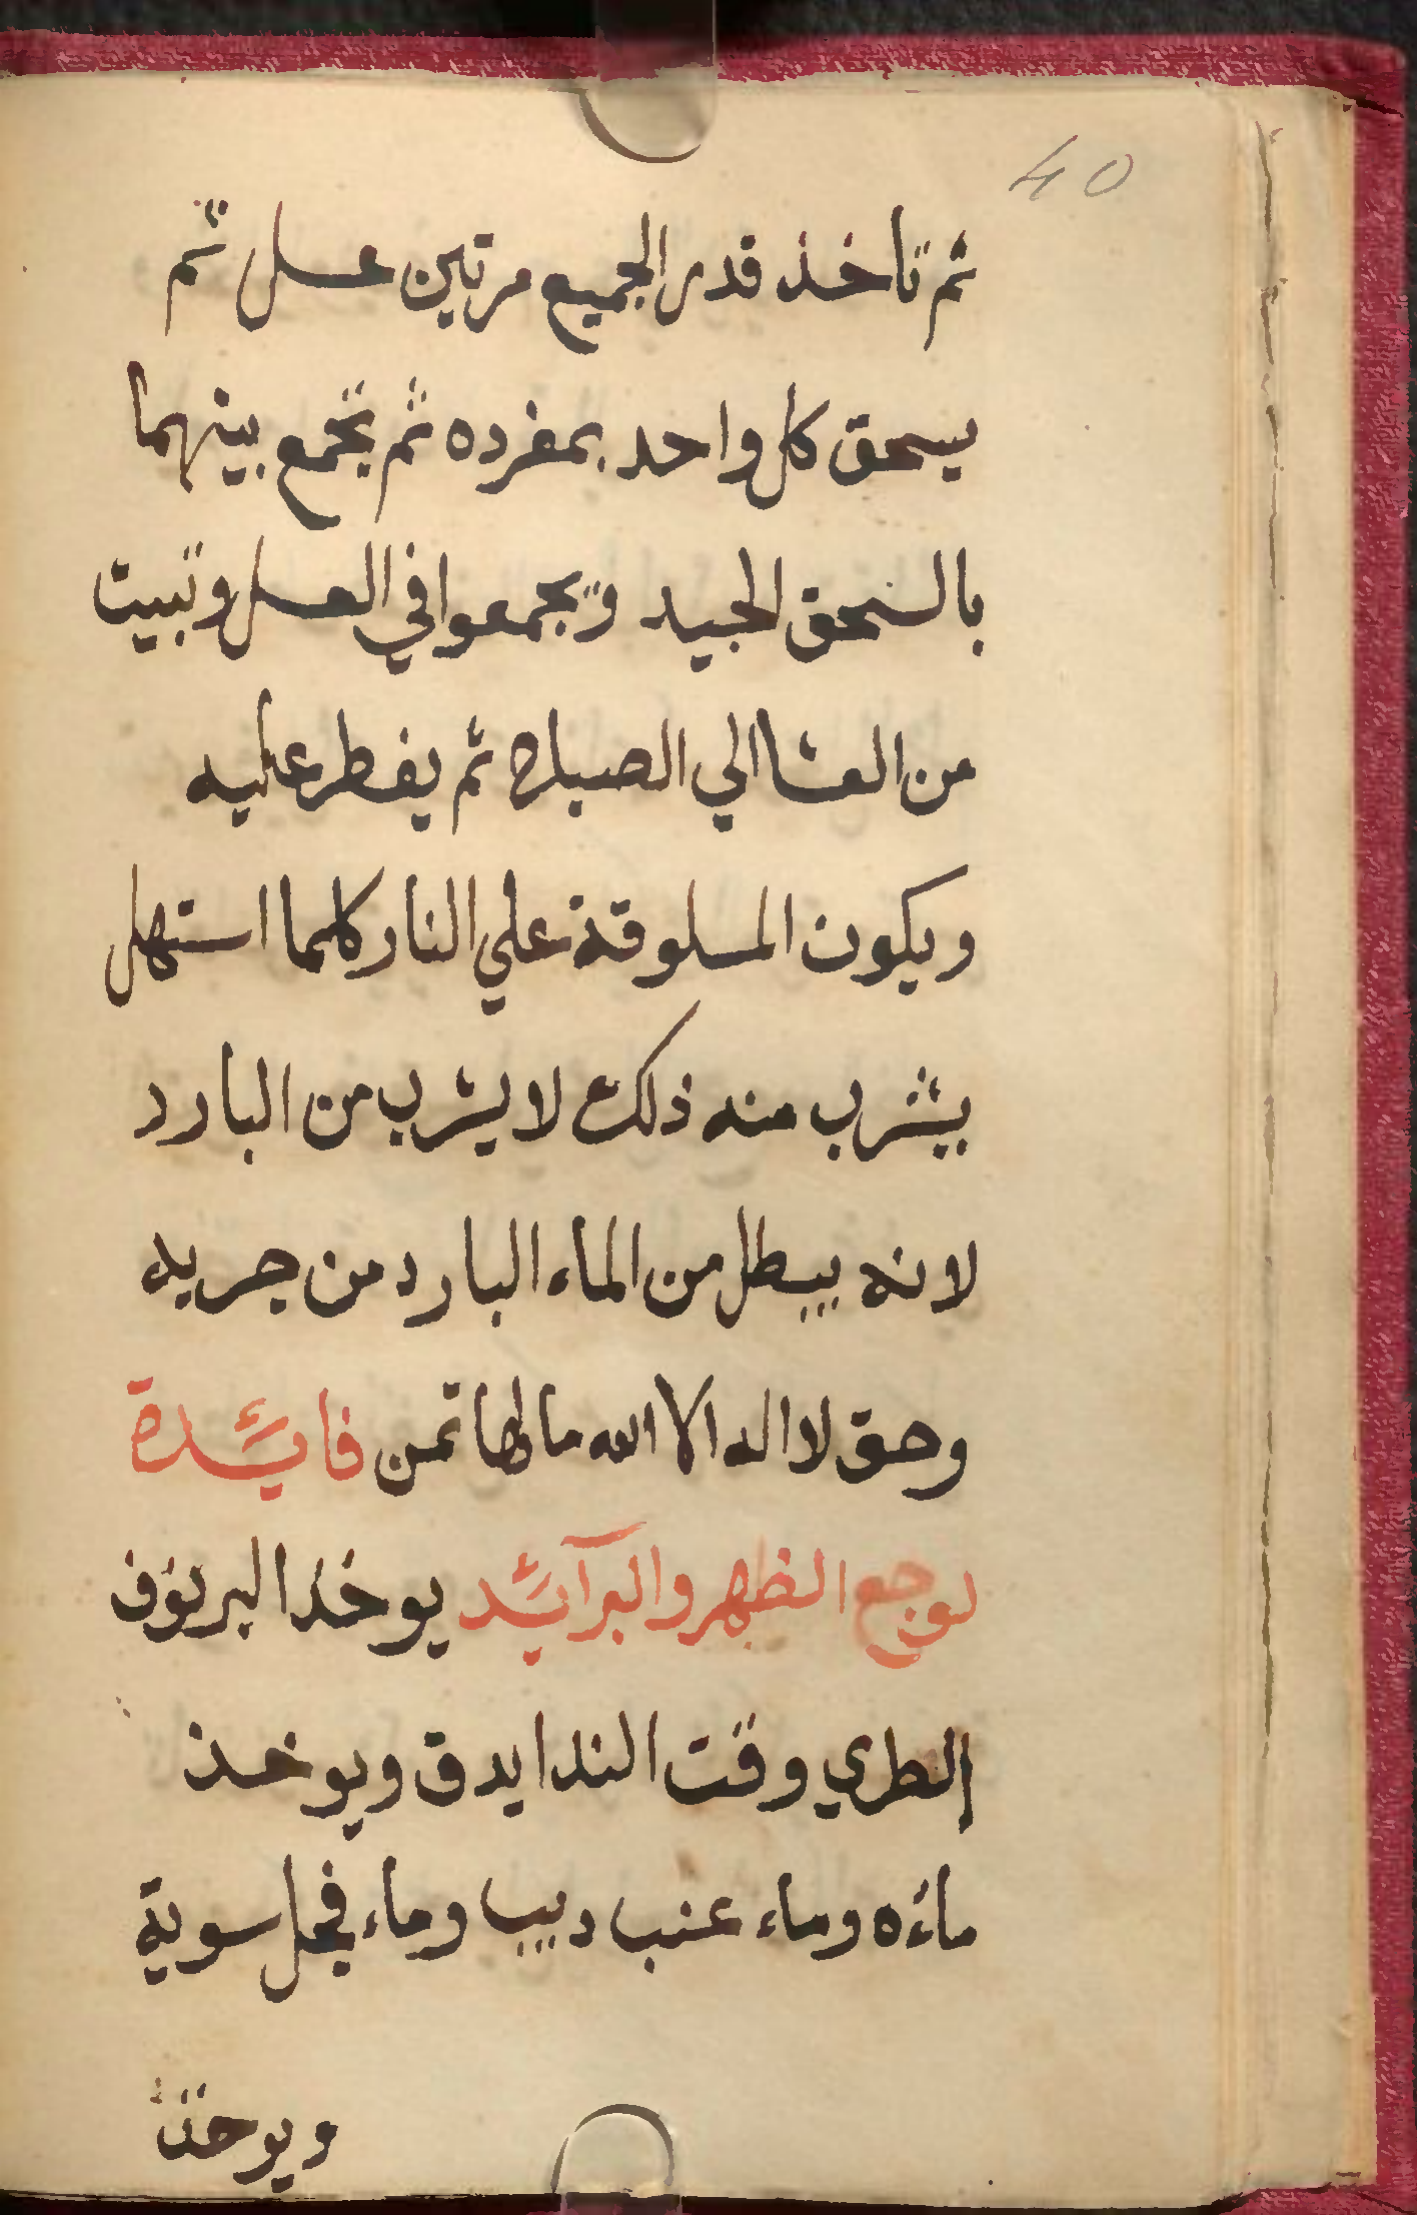 40
ثم تاخذ قدر الجميع مرتين عسل ثم
يسحق كل واحد بمفرده ثم تجمع بينهما
بالسحق الجيد ويجمعوا في العسل وتبيت
من العشا الي الصباح ثم يفطر عليه
ويكون المسلوقة علي النار كلما استهل
يشرب منه ذلك لا يشرب من البارد
لانه يبطل من الماء البارد من جريه
وحق لا اله الا الله ما لها تمن فايدة
لوجع الظهر والبرآئد يوخذ البرنوف
الطري وقت الندا يدق ويوخذ
مائه وماء عنب ديب وماء فجل سوية
ويوخذ